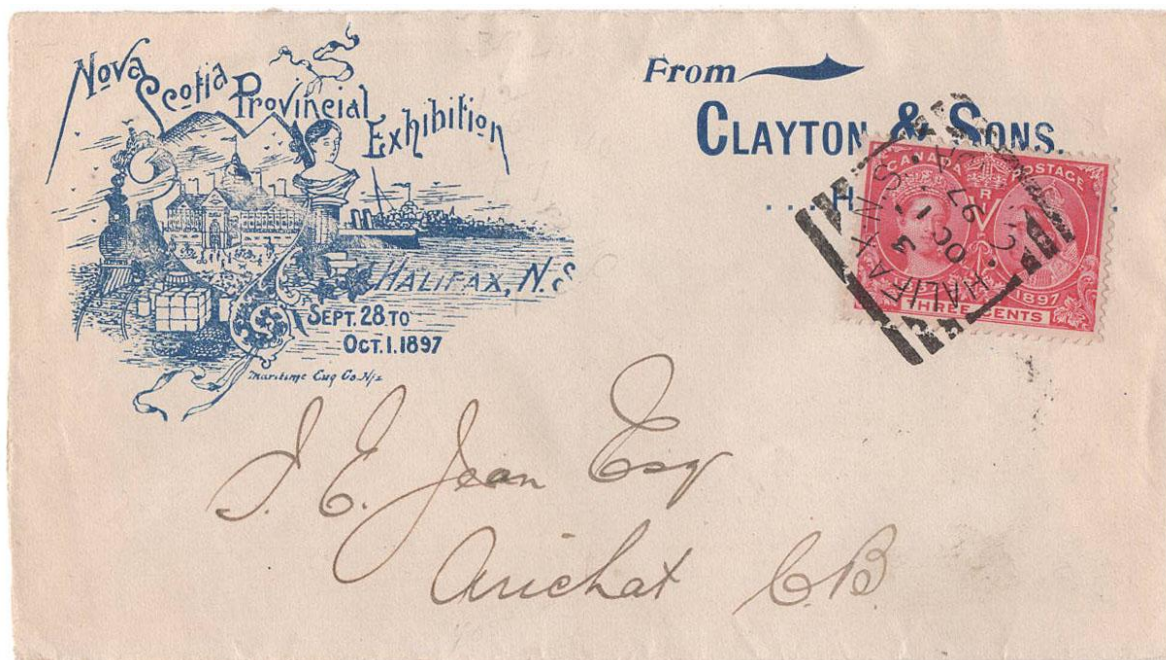 Nova Scotia Provincial Exhibition
HALIFAX, N.S
SEPT. 28 TO
OCT. 1. 1897
Maritime Eng Co. Hfx
From
CLAYTON & SONS.
...H
CANADA POSTAGE
V R
1897
THREE CENTS
HALIFAX N.S.
3
OC 1
97
CANADA
J. E. Jean Esq
Arichat C.B.